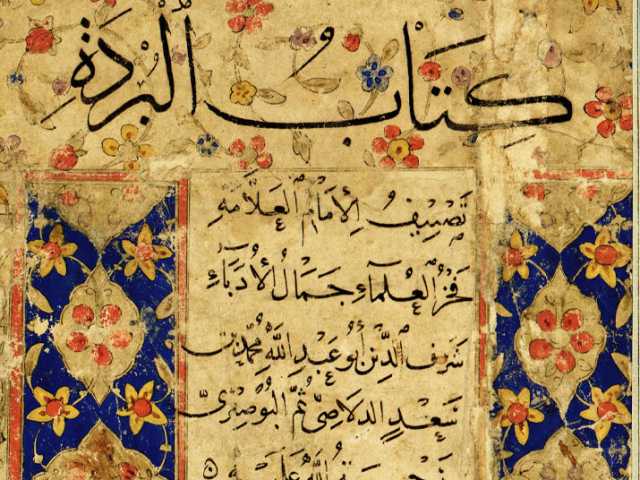 كِتَابُ ٱلْبُرْدَةِ
تَصْنِيفُ الْإِمَامِ الْعَلَّامَةِ
فَخْرُ الْعُلَمَاءِ جَمَالُ الْأُدَبَاءِ
شَرَفِ الدِّينِ أَبُو عَبْدِ اللَّهِ مُحَمَّدِ بْنِ
سَعِيدٍ الدَّلَاصِيِّ ثُمَّ الْبُوصِيرِيِّ
اللَّهُ عَلَيْهِ